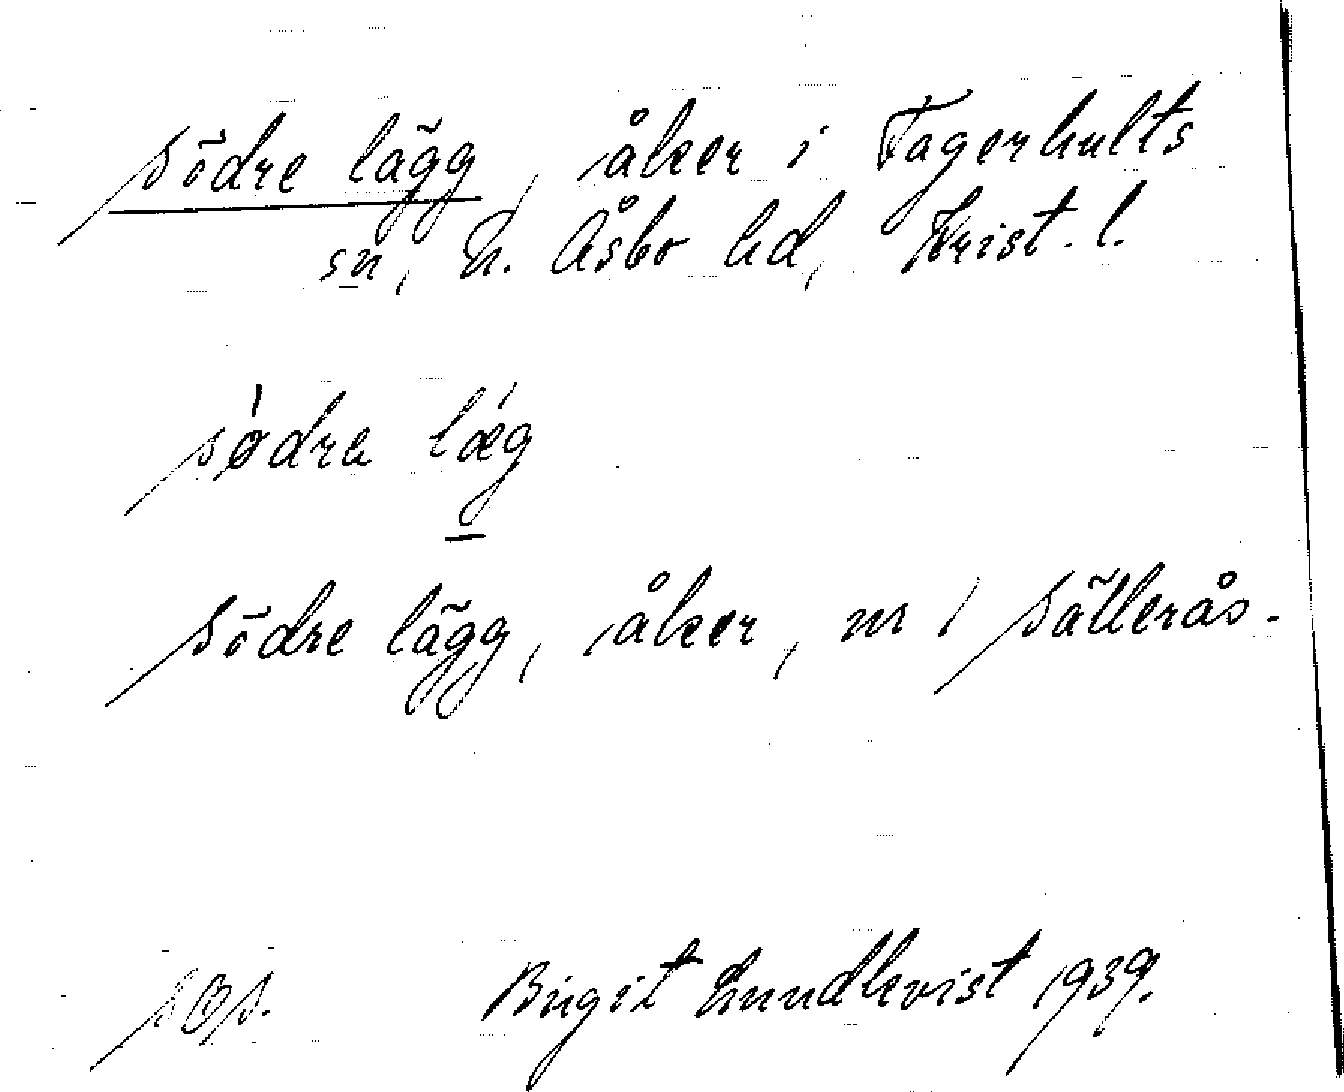 södre lägg, åker i Fagerhults
sn, N. Åsbo hd, Krist. l.
sø̀dra lǽg
södre lägg, åker, nr 1 Sällerås.
Birgit Lundkvist 1939.